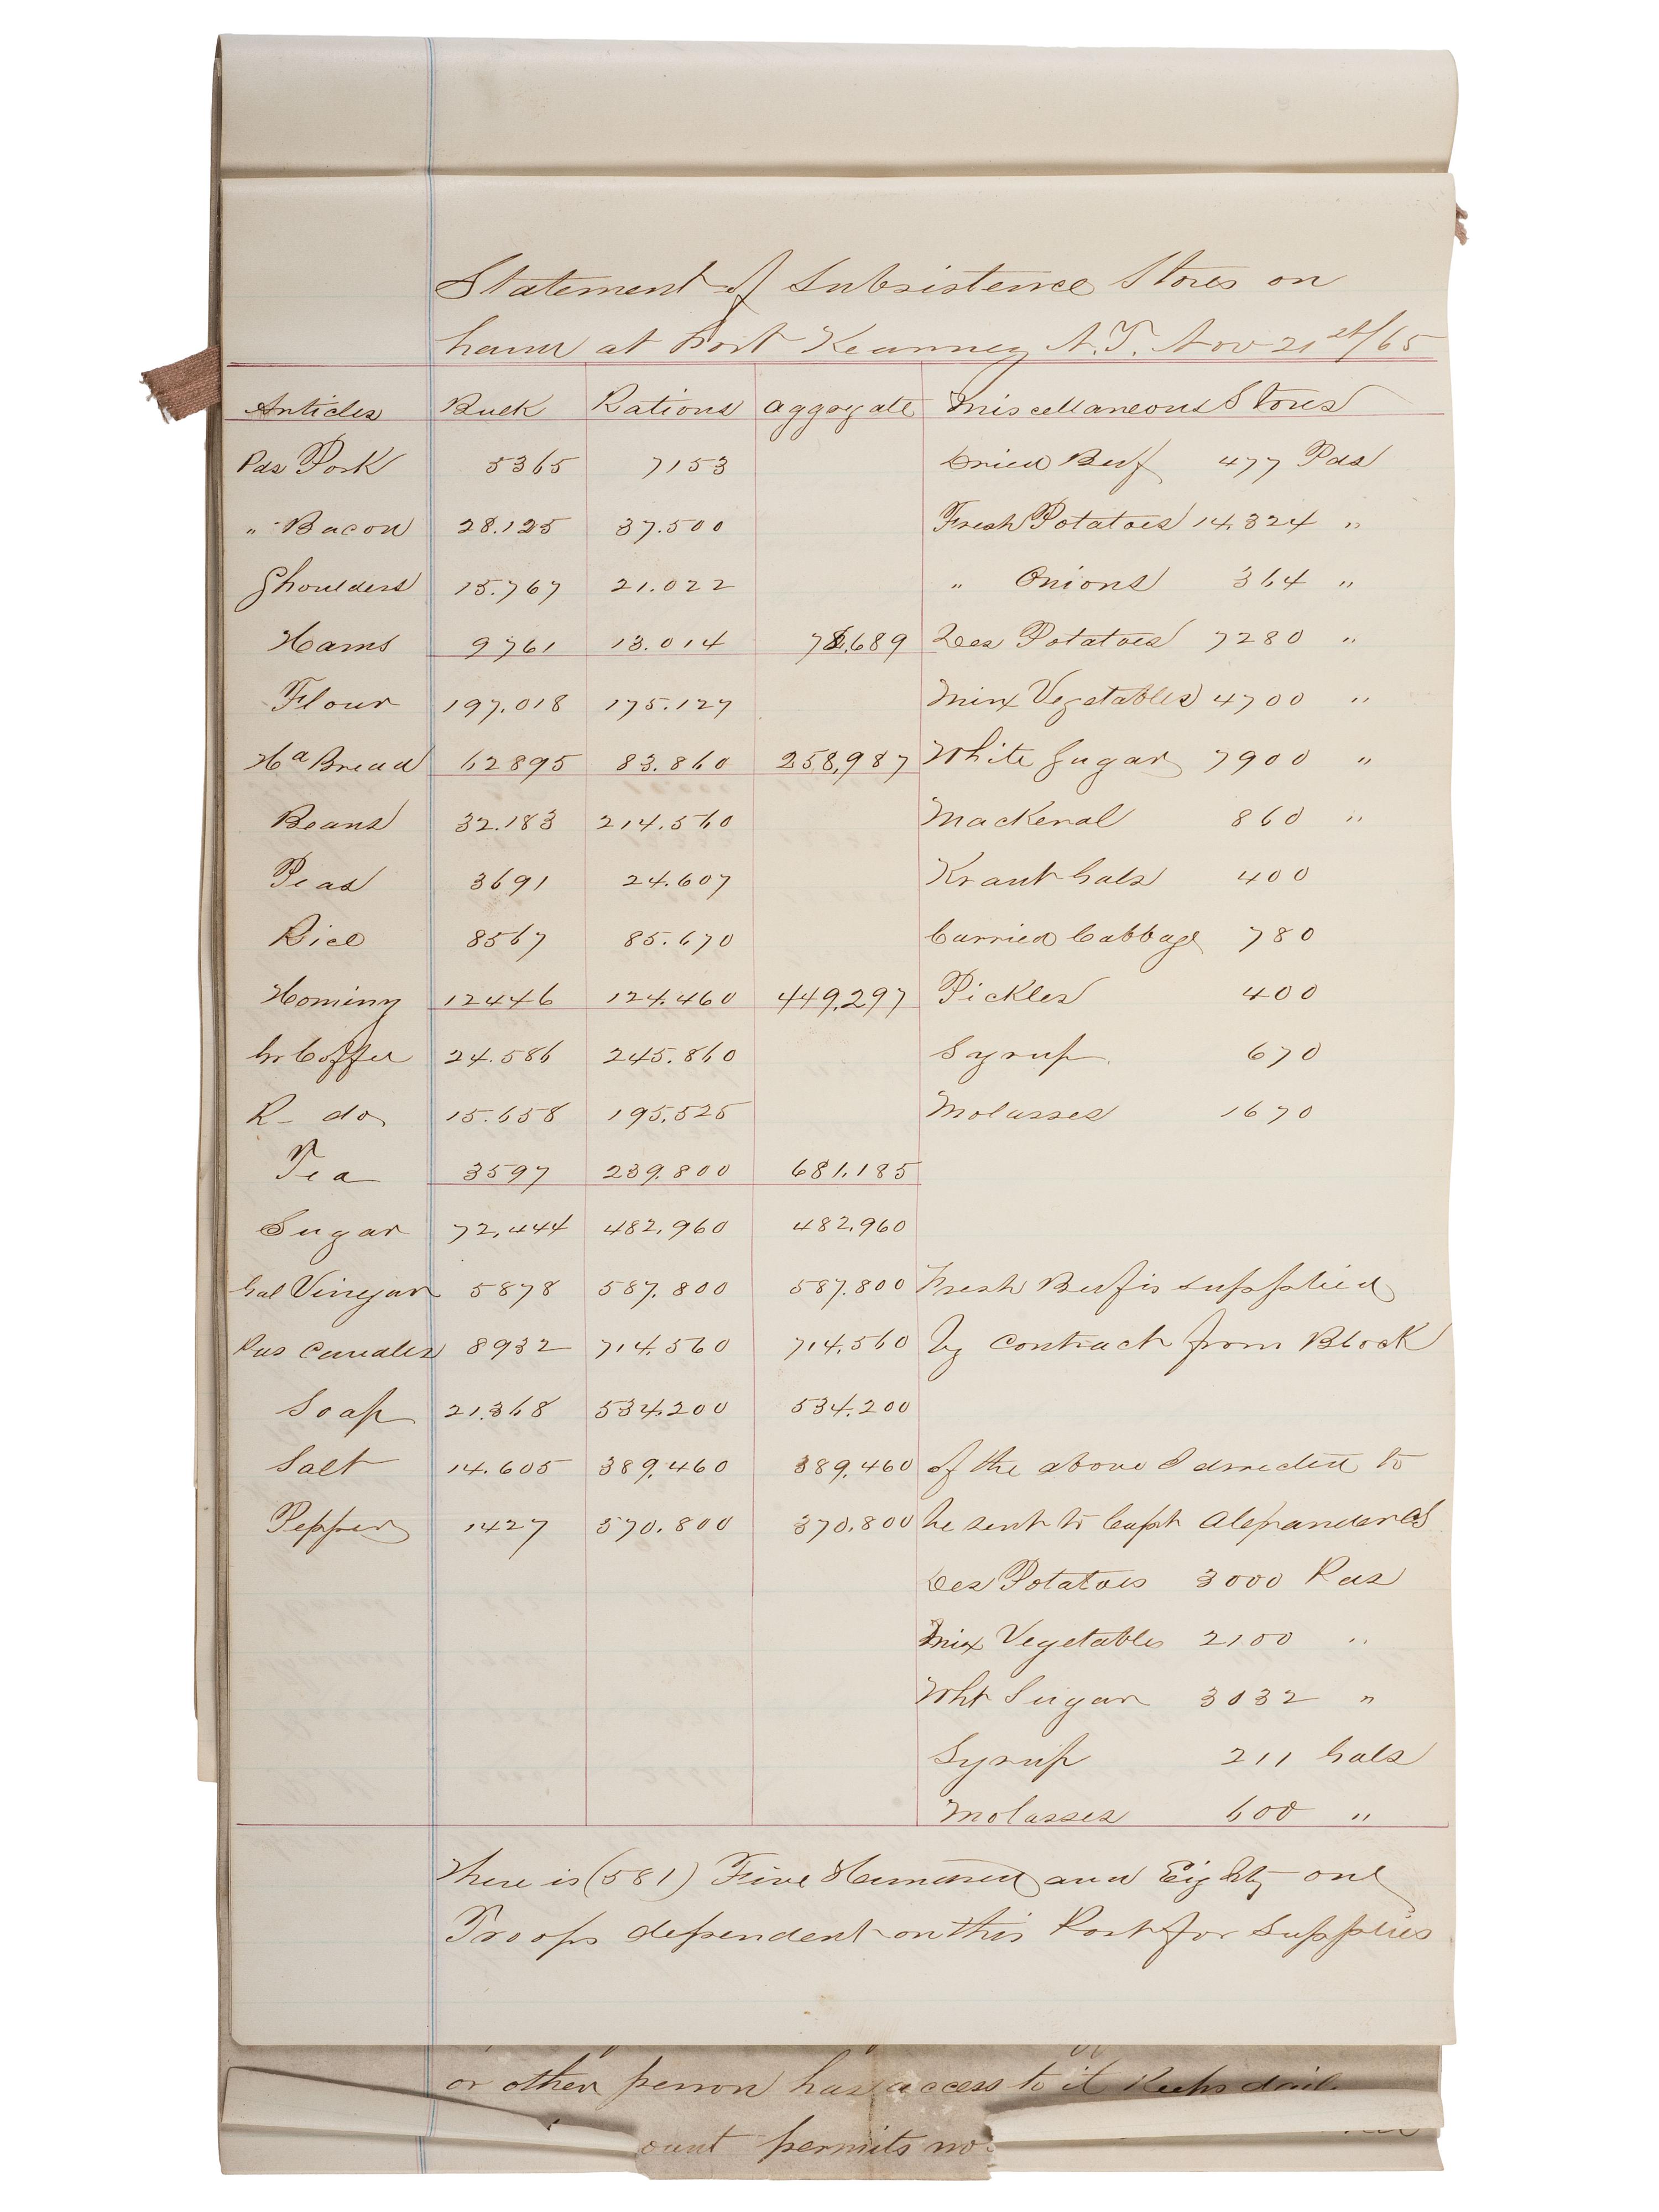 Statement of Subsistence Stores on
hand at Fort Kearney N.T. Nov 21st/65
Articles Bulk Rations Aggregate Miscellaneous Stores
Pds Pork 5365 7153 Dried Beef 477 Pds
" Bacon 28.125 37.500 Fresh Potatoes 14.324 "
Shoulders 15.767 21.022 " Onions 364 "
Hams 9761 13.014 78.689 Des Potatoes 7280 "
Flour 197.018 175.127 Mix Vegetables 4700 "
Hd Bread 62895 83.860 258,987 White Sugar 7900 "
Beans 32.183 214.560 Mackeral 860 "
Peas 3691 24.607 Kraut Gals 400
Rice 8567 85.670 Curried Cabbage 780
Hominy 12446 124.460 449,297 Pickles 400
Gr Coffee 24.586 245.860 Syrup 670
R - do 15.658 195,525 Molasses 1670
Tea 3597 239.800 681,185
Sugar 72,444 482,960 482,960
Gal Vinegar 5878 587.800 587.800 Fresh Beef is supplied
Pds Candles 8932 714.560 714,560 by contract from Block
Soap 21.368 534.200 534.200
Salt 14.605 389,460 389,460 of the above I directed to
Pepper 1427 570.800 370.800 be sent to Capt Alexander CS
Des Potatoes 3000 Pds
Mix Vegetables 2100 "
Wht Sugar 3032 "
Syrup 211 Gals
Molasses 600 "
There is (581) Five Hundred and Eighty one
Troops dependent on this Post for supplies
or other person has access to it Keeps
ount permits no